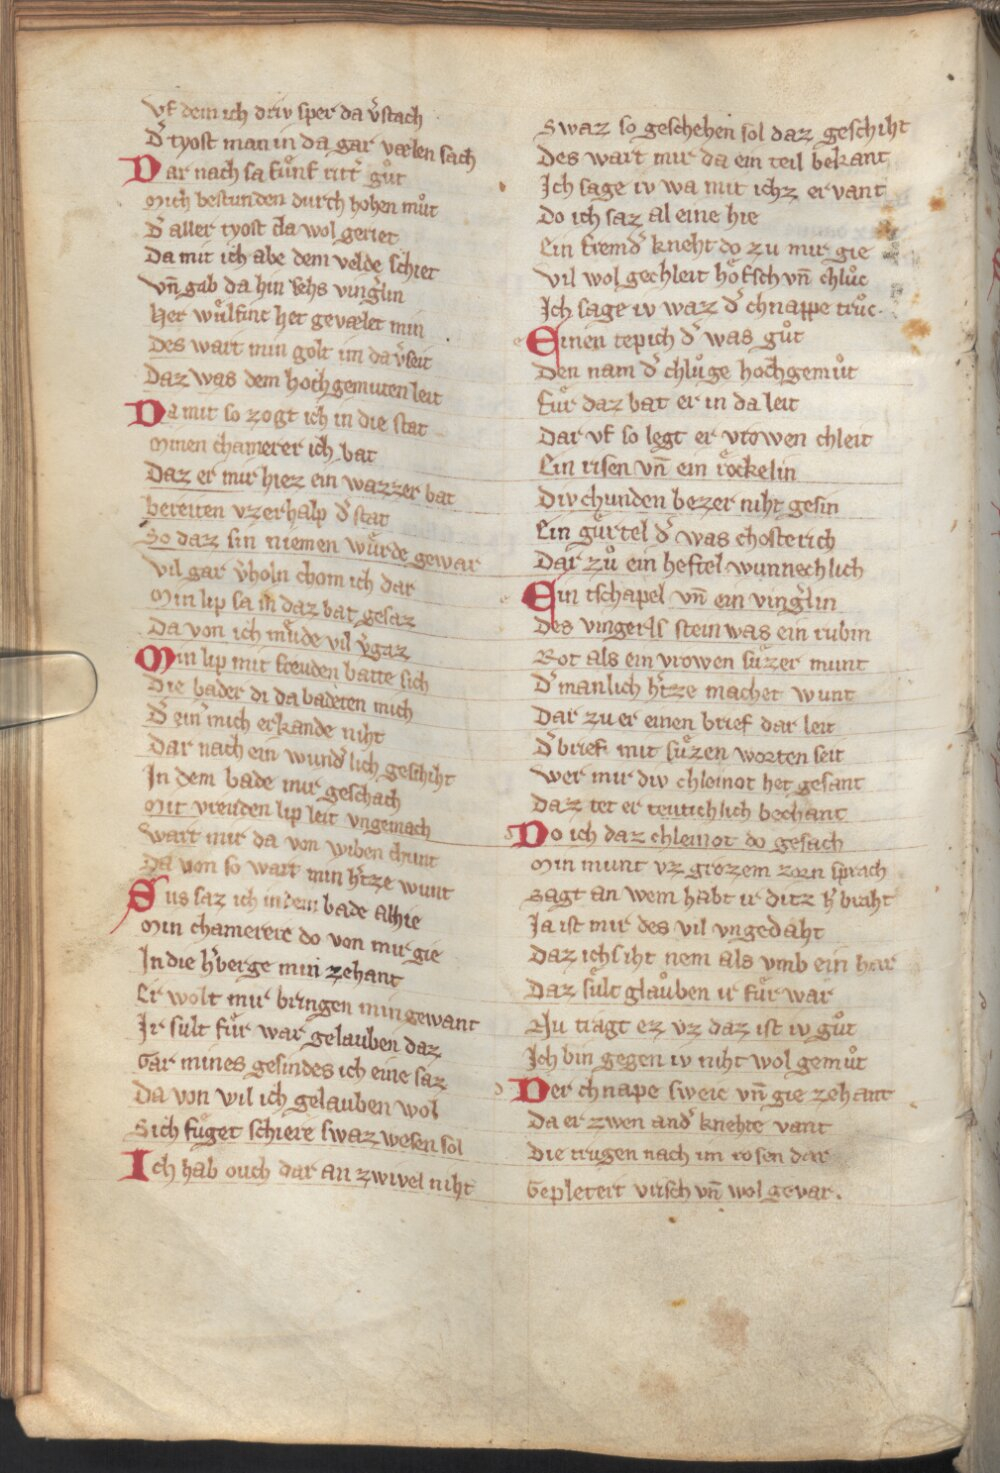 Vf dem ich driv sper da v̾stach
D̾ tyost man in da gar vælen sach
Dar nach sa fuͤnf ritt̾ guͦt
Mich bestunden durch hohen muͦt
D̾ aller tyost da wol geriet
Da mit ich abe dem velde schiet
Vn̄ gab da hin sehs ving̾lin
Her wuͤlfinc het gevælet min
Des wart min golt im da v̾seit
Daz was dem hochgemuten leit
Da mit so zogt ich in die stat
Minen chamerer ich bat
Daz er mir hiez ein wazzer bat
bereiten vzerhalp d̾ stat
So daz sin niemen wuͤrde gewar
Vil gar v̾holn chom ich dar
Min lip sa in daz bat gesaz
Da von ich muͤde vil v̾gaz
Min lip mit freuden batte sich
Die bader di da badeten mich
D̾ ein̾ mich erkande niht
Dar nach ein wund̾lich geschiht
In dem bade mir geschach
Mit vreuden lip leit vngemach
Wart mir da von wiben chunt
Da von so wart min h̾tze wunt
Sus saz ich in dem bade alhie
Min chamerere do von mir gie
In die h̾berge min zehant
Er wolt mir bringen min gewant
Ir sult fuͤr war gelauben daz
Gar mines gesindes ich eine saz
Da von wil ich gelauben wol
Sich fuͤget schiere swaz wesen sol
Ich hab ouch dar an zwivel niht
Swaz so geschehen sol daz geschiht
Des wart mir da ein teil bekant
Ich sage iv wa mit ichz ervant
Do ich saz al eine hie
Ein fremd̾ kneht do zu mir gie
Vil wol gechleit hoͤfsch vn̄ chluͦc
Ich sage iv waz d̾ chnappe truͦc.
Einen tepich d̾ was guͦt
Den nam d̾ chluͦge hochgemuͦt
Fuͤr daz bat er in da leit
Dar vf so legt er vrowen chleit
Ein risen vn̄ ein roͤckelin
Div chunden bezer niht gesin
Ein guͤrtel d̾ was chosterich
Dar zuͦ ein heftel wunnechlich
Ein tschapel vn̄ ein ving̾lin
Des vingerls stein was ein rubin
Rot als ein vrowen suͤzer munt
D̾ manlich h̾tze machet wunt
Dar zu er einen brief dar leit
D̾ brief mit suͤzen worten seit
Wer mir div chleinot het gesant
Daz tet er teutschlich bechant
Do ich daz chleinot do gesach
Min munt vz grozem zorn sprach
Sagt an wem habt ir ditz h̾ braht
Ja ist mir des vil vngedaht
Daz ichs iht nem als vmb ein har
Daz sult glauͤben ir fuͤr war
Nu tragt ez vz daz ist iv guͦt
Ich bin gegen iv niht wol gemuͦt
Der chnape sweic vn̄ gie zehant
Da er zwen and̾ knehte vant
Die trugen nach im rosen dar
Gepletert virsch vn̄ wol gevar.